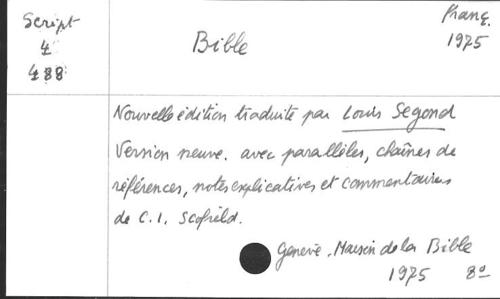 Script
4
488
Bible
Franç.
1975
Nouvelle édition traduite par Louis Segond
Version neuve. avec parallèles, chaînes de
références, notes explicatives et commentaires
de C. I. Scofield.
Genève. Maison de la Bible
1975 8°